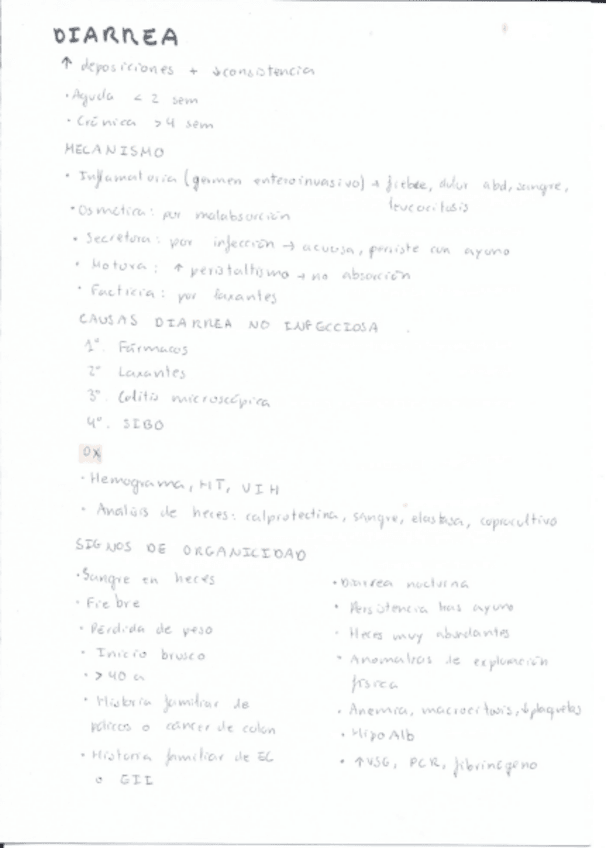 DIARREA
↑ deposiciones + ↓consistencia
· Aguda < 2 sem
· Crónica > 4 sem
MECANISMO
· Inflamatoria (germen enteroinvasivo) → fiebre, dolor abd, sangre,
leucocitosis
· Osmótica: por malabsorción
· Secretora: por infección → acuosa, persiste con ayuno
· Motora: ↑ peristaltismo → no absorción
· Facticia: por laxantes
CAUSAS DIARREA NO INFECCIOSA
1º. Fármacos
2º Laxantes
3º. Colitis microscópica
4º. SIBO
DX
· Hemograma, HT, VIH
· Análisis de heces: calprotectina, sangre, elastasa, coprocultivo
SIGNOS DE ORGANICIDAD
· Sangre en heces
· Fiebre
· Pérdida de peso
· Inicio brusco
· > 40 a
· Historia familiar de
pólipos o cáncer de colon
· Historia familiar de EC
o EII
· Diarrea nocturna
· Persistencia tras ayuno
· Heces muy abundantes
· Anomalías de exploración
física
· Anemia, macrocitosis, ↓plaquetas
· HipoAlb
· ↑VSG, PCR, fibrinógeno